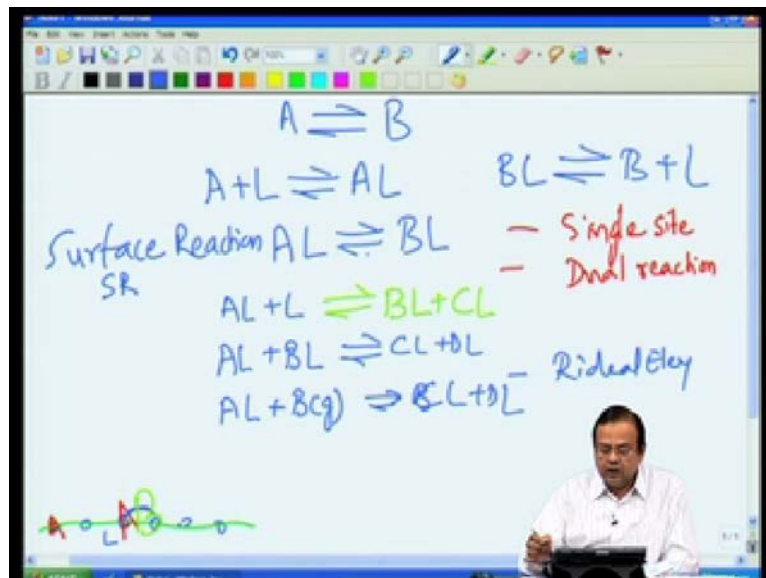 File Edit View Insert Actions Tools Help
A ⇌ B
A+L ⇌ AL
BL ⇌ B+L
Surface Reaction AL ⇌ BL
SR
— Single site
— Dual reaction
AL + L ⇌ BL+CL
AL + BL ⇌ CL + DL
AL + B(g) ⇒ CL + DL
— Rideal Eley
A
L
A
1/1